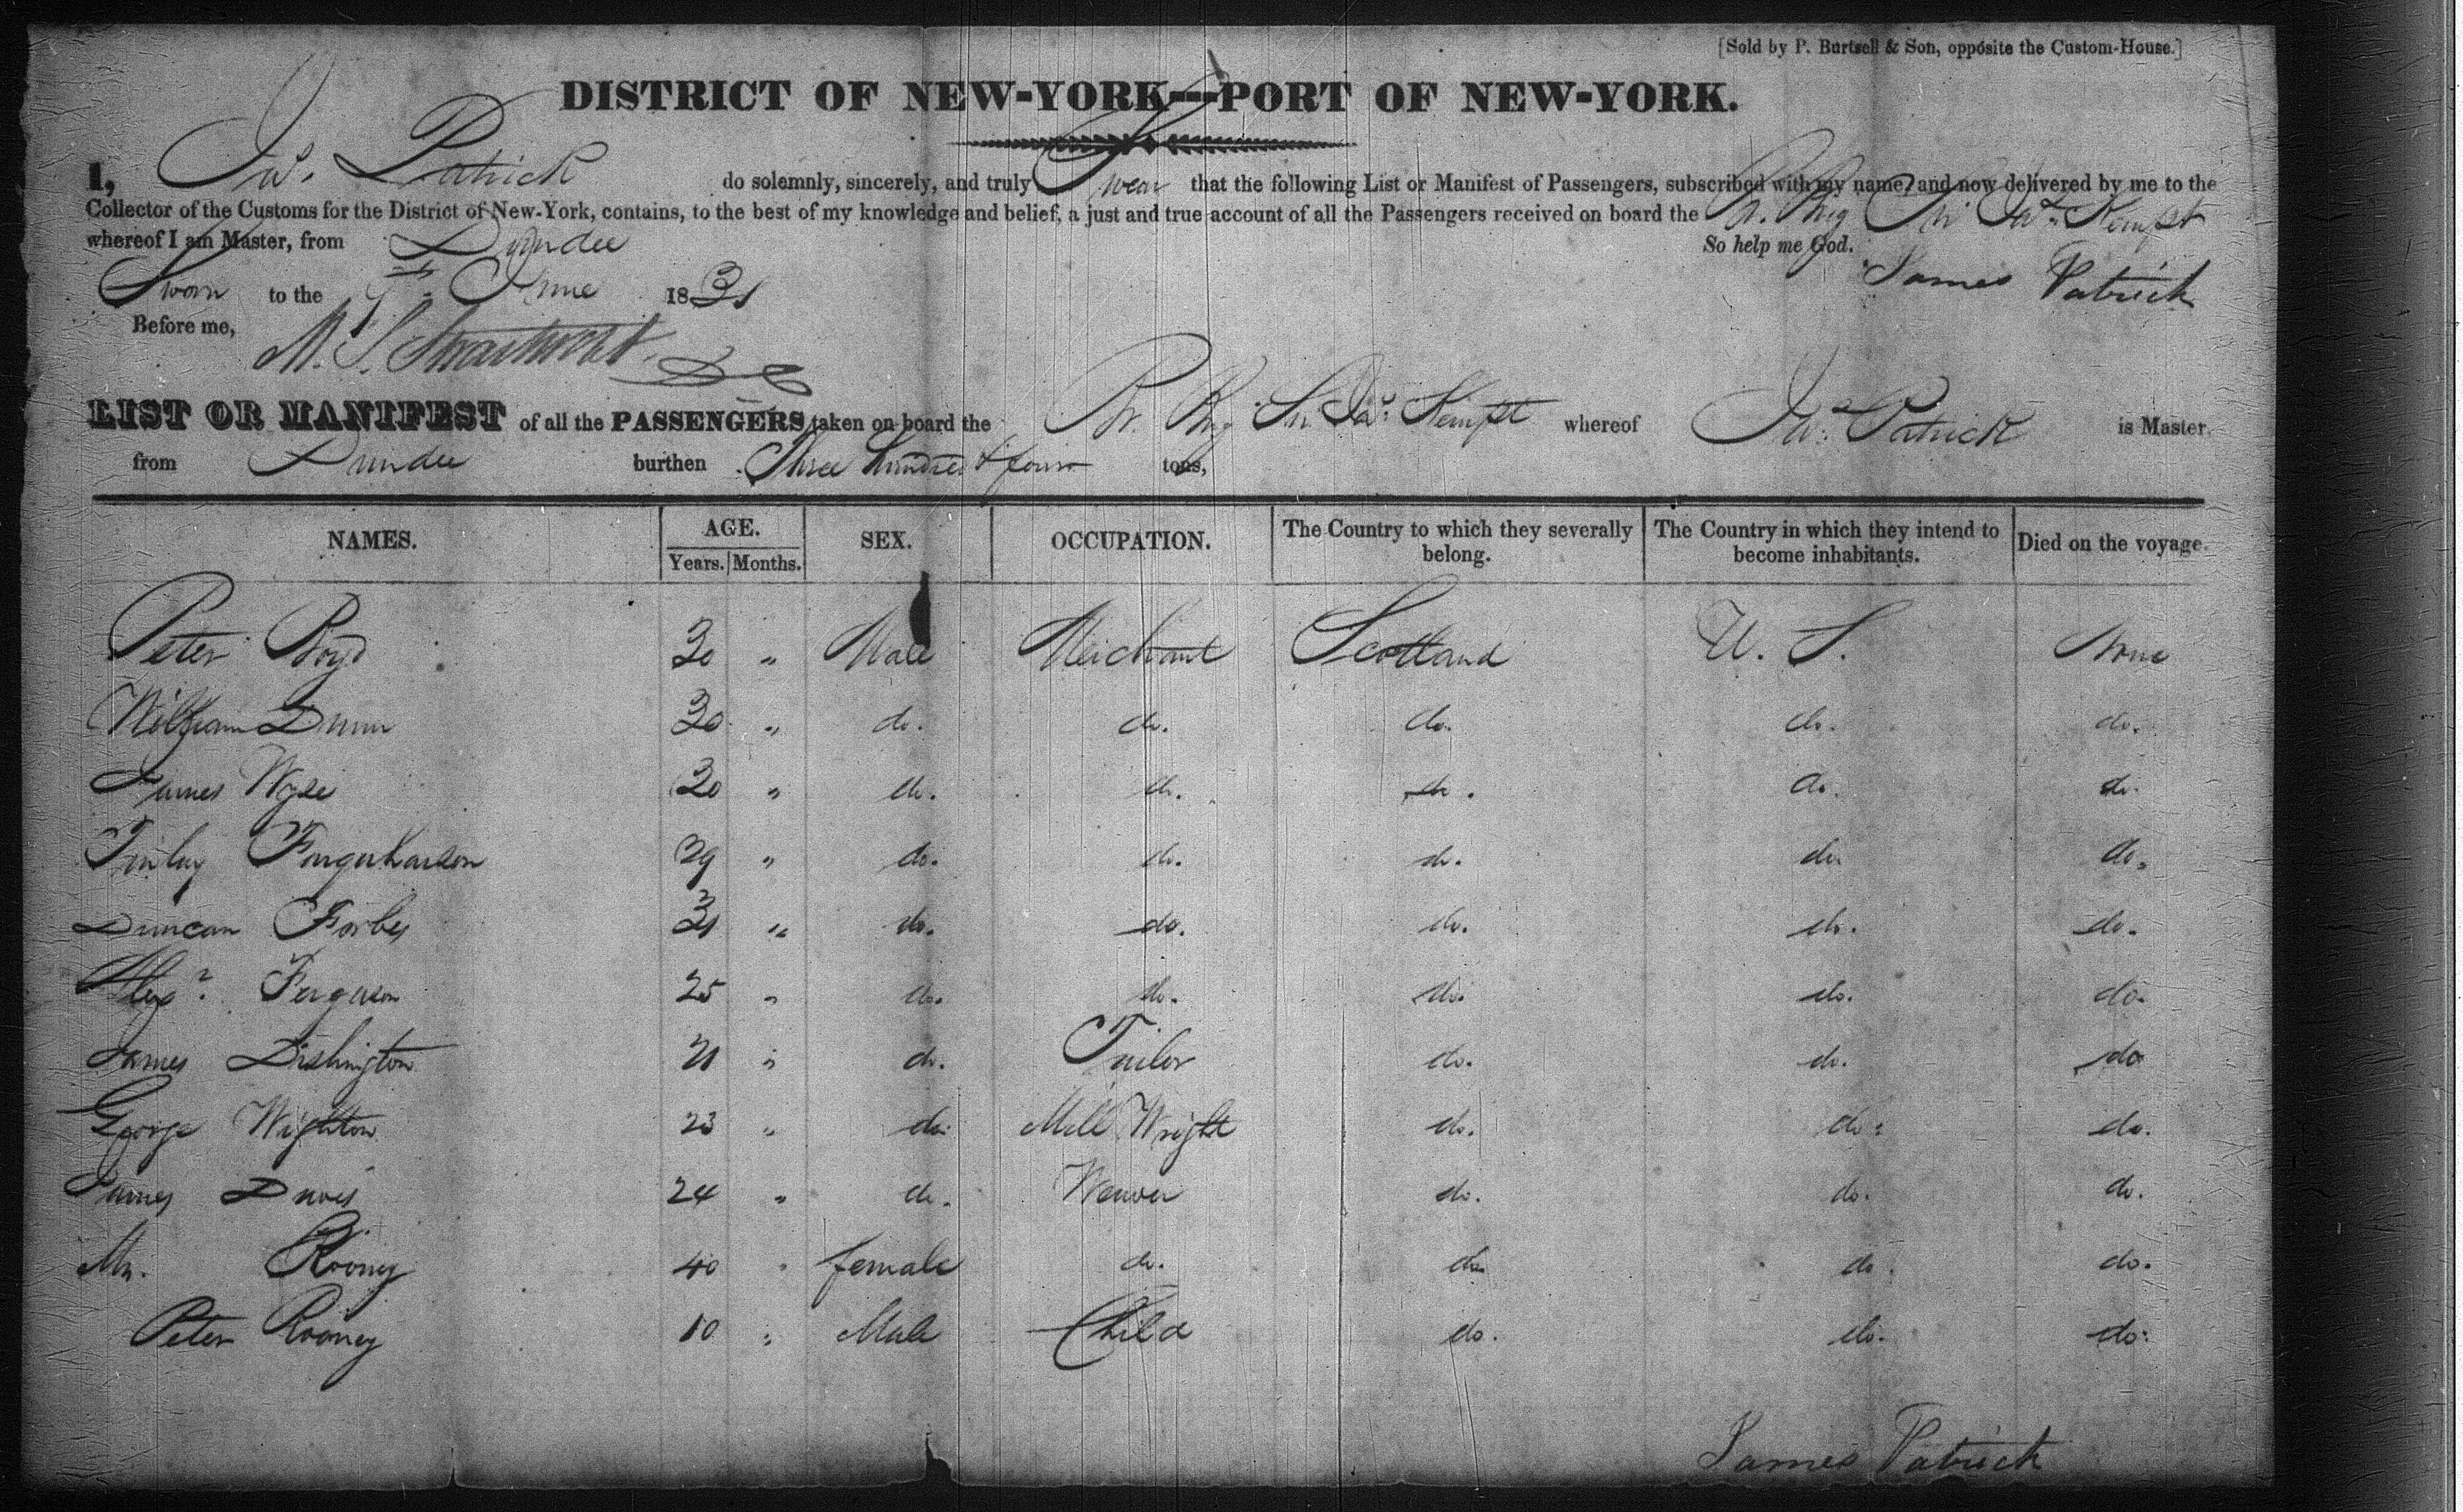 [Sold by P. Burtsell & Son, opposite the Custom-House.]
DISTRICT OF NEW-YORK—PORT OF NEW-YORK.
I, Jas. Patrick do solemnly, sincerely, and truly Swear that the following List or Manifest of Passengers, subscribed with my name, and now delivered by me to the
Collector of the Customs for the District of New-York, contains, to the best of my knowledge and belief, a just and true account of all the Passengers received on board the Br. Brig Sir Jas. Kempt
whereof I am Master, from Dundee So help me God.
Sworn to the 7th June 1831 James Patrick
Before me,
M. S. Swartwout
LIST OR MANIFEST of all the PASSENGERS taken on board the Br. Brig Sir Jas. Kempt whereof Jas. Patrick is Master
from Dundee burthen Three hundred & four tons,
NAMES. AGE. Years. Months. SEX. OCCUPATION. The Country to which they severally belong. The Country in which they intend to become inhabitants. Died on the voyage.
Peter Boyd 30 " Male Merchant Scotland U. S. None
William Dunn 30 " do. do. do. do. do.
James Wyse 30 " do. do. do. do. do.
Finlay Farquharson 29 " do. do. do. do. do.
Duncan Forbes 31 " do. do. do. do. do.
Alexr. Ferguson 25 " do. do. do. do. do.
James Dishington 21 " do. Tailor do. do. do
George Wighton 23 " do. Mill Wright do. do. do.
James Davis 24 " do. Weaver do. do. do.
Mrs. Rooney 40 " female do. do. do. do.
Peter Rooney 10 " Male Child do. do. do.
James Patrick